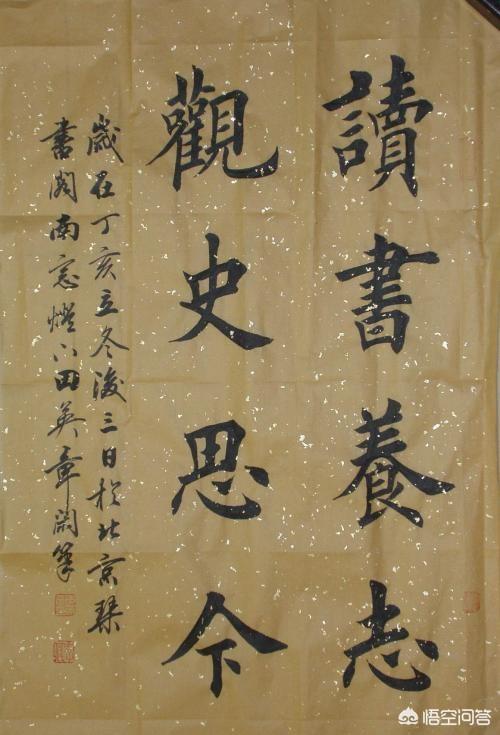 讀書養志
觀史思今
歲在丁亥立冬後三日於北京琴
書閣南窓燈下田英章閑筆
悟空问答